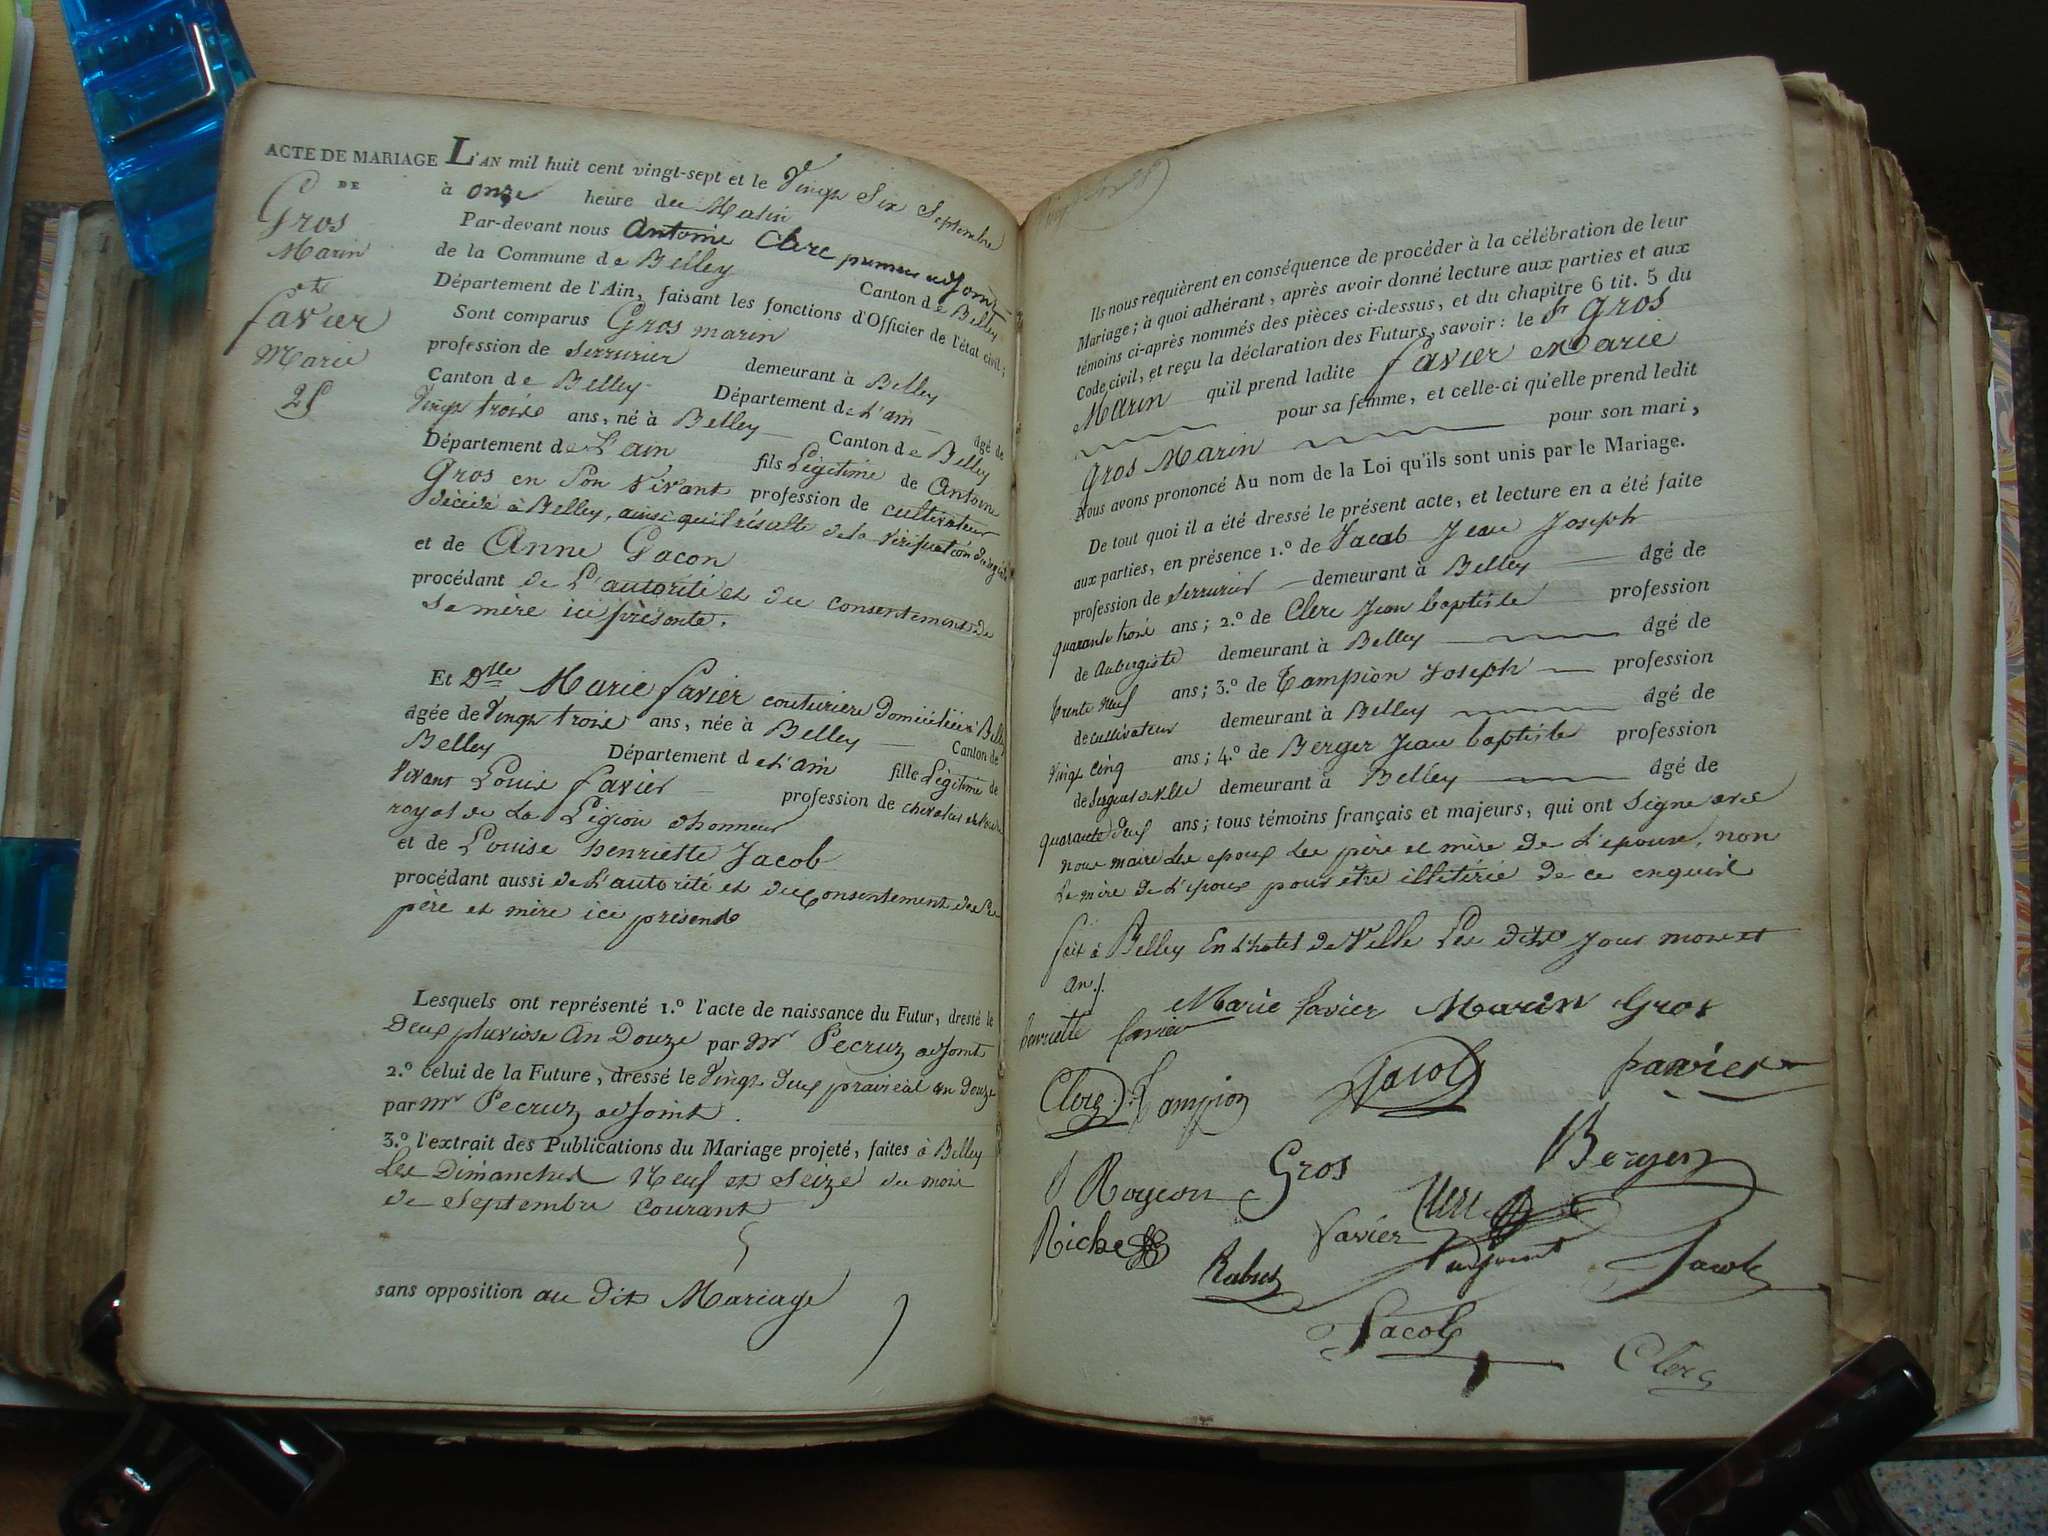 ACTE DE MARIAGE
DE
Gros
Marin
et
favier
Marie
25
L'AN mil huit cent vingt-sept et le Vingt Six Septembre
à onze heure du Matin
Par-devant nous Antoine Clerc premier adjoint
de la Commune de Belley Canton de Belley
Département de l'Ain, faisant les fonctions d'Officier de l'état civil;
Sont comparus Gros marin
profession de Serrurier demeurant à Belley
Canton de Belley Département de l'ain âgé de
Vingt trois ans, né à Belley Canton de Belley
Département de L'ain fils Légitime de Antoine
Gros en Son Vivant profession de cultivateur
décédé à Belley, ainsi qu'il résulte de la Vérification des registres
et de Anne Gacon
procédant de L'autorité et du consentement de
Sa mère ici présente.
Et Dlle Marie favier couturière domiciliée à Belley
âgée de Vingt trois ans, née à Belley Canton de
Belley Département de l'ain fille Légitime de
Vivant Louis favier profession de chevalier de l'ordre
royal de La Légion d'honneur
et de Louise henriette Jacob
procédant aussi de L'autorité et du Consentement de Ses
père et mère ici présents
Lesquels ont représenté 1.° l'acte de naissance du Futur, dressé le
Deux pluviose An Douze par Mr Pecruz adjoint
2.° celui de la Future, dressé le Vingt deux prairéal an douze
par Mr Pecruz adjoint.
3.° l'extrait des Publications du Mariage projeté, faites à Belley
Les Dimanches Neuf et Seize du mois
de Septembre courant
sans opposition au dit Mariage
Ils nous requièrent en conséquence de procéder à la célébration de leur
Mariage; à quoi adhérant, après avoir donné lecture aux parties et aux
témoins ci-après nommés des pièces ci-dessus, et du chapitre 6 tit. 5 du
Code civil, et reçu la déclaration des Futurs, savoir: le Sr Gros
Marin qu'il prend ladite favier Marie
pour sa femme, et celle-ci qu'elle prend ledit
Gros Marin pour son mari,
Nous avons prononcé Au nom de la Loi qu'ils sont unis par le Mariage.
De tout quoi il a été dressé le présent acte, et lecture en a été faite
aux parties, en présence 1.° de Jacob Jean Joseph
profession de Serrurier demeurant à Belley âgé de
quarante trois ans; 2.° de Clerc Jean baptiste profession
de Aubergiste demeurant à Belley âgé de
trente neuf ans; 3.° de Tampion Joseph profession
de cultivateur demeurant à Belley âgé de
Vingt cinq ans; 4.° de Berger Jean baptiste profession
de Sergent de Ville demeurant à Belley âgé de
quarante deux ans; tous témoins français et majeurs, qui ont Signé avec
nous maire Les epoux Les père et mère de L'epouse, non
La mère de L'epoux pour être illétérée de ce enquise
fait à Belley En L'hotel de Ville Les dits jour mois et
an.
Marie Favier Marin Gros
henriette favier
Clerc Tampion Jacob favier
Berger
Gros
Rogeon
Clerc
Riche
favier
adjoint
Jacob
Rabut
Jacob
Clerc